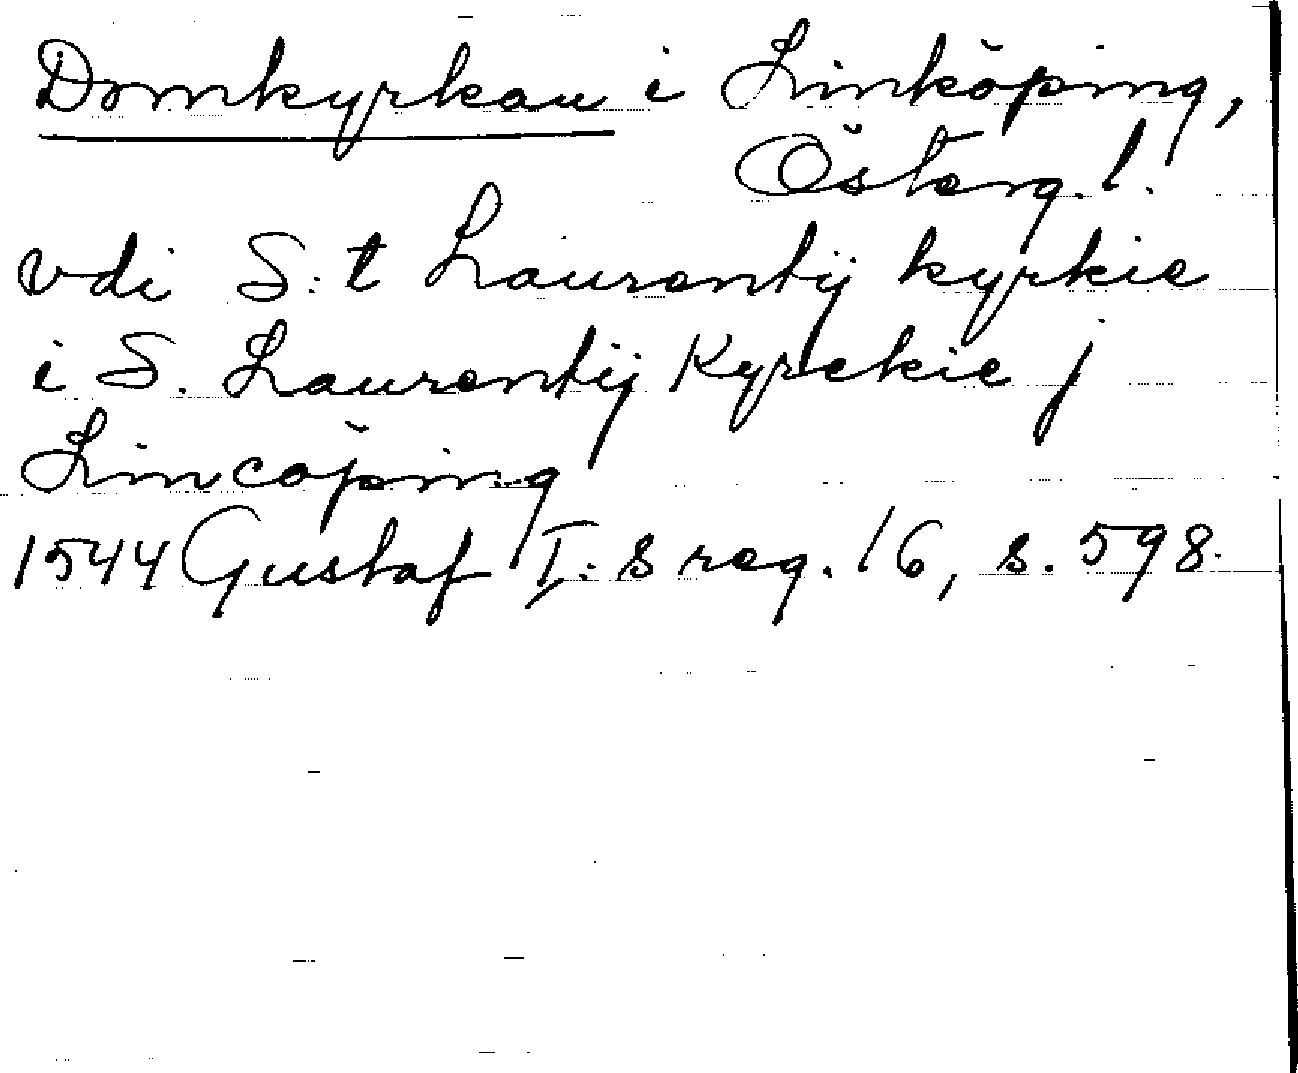 Domkyrkan i Linköping,
Österg. l.
vdi S:t Laurentij kyrkie
i S. Laurentij Kyrckie j
Lincöping
1544 Gustaf I:s reg. 16, s. 598.